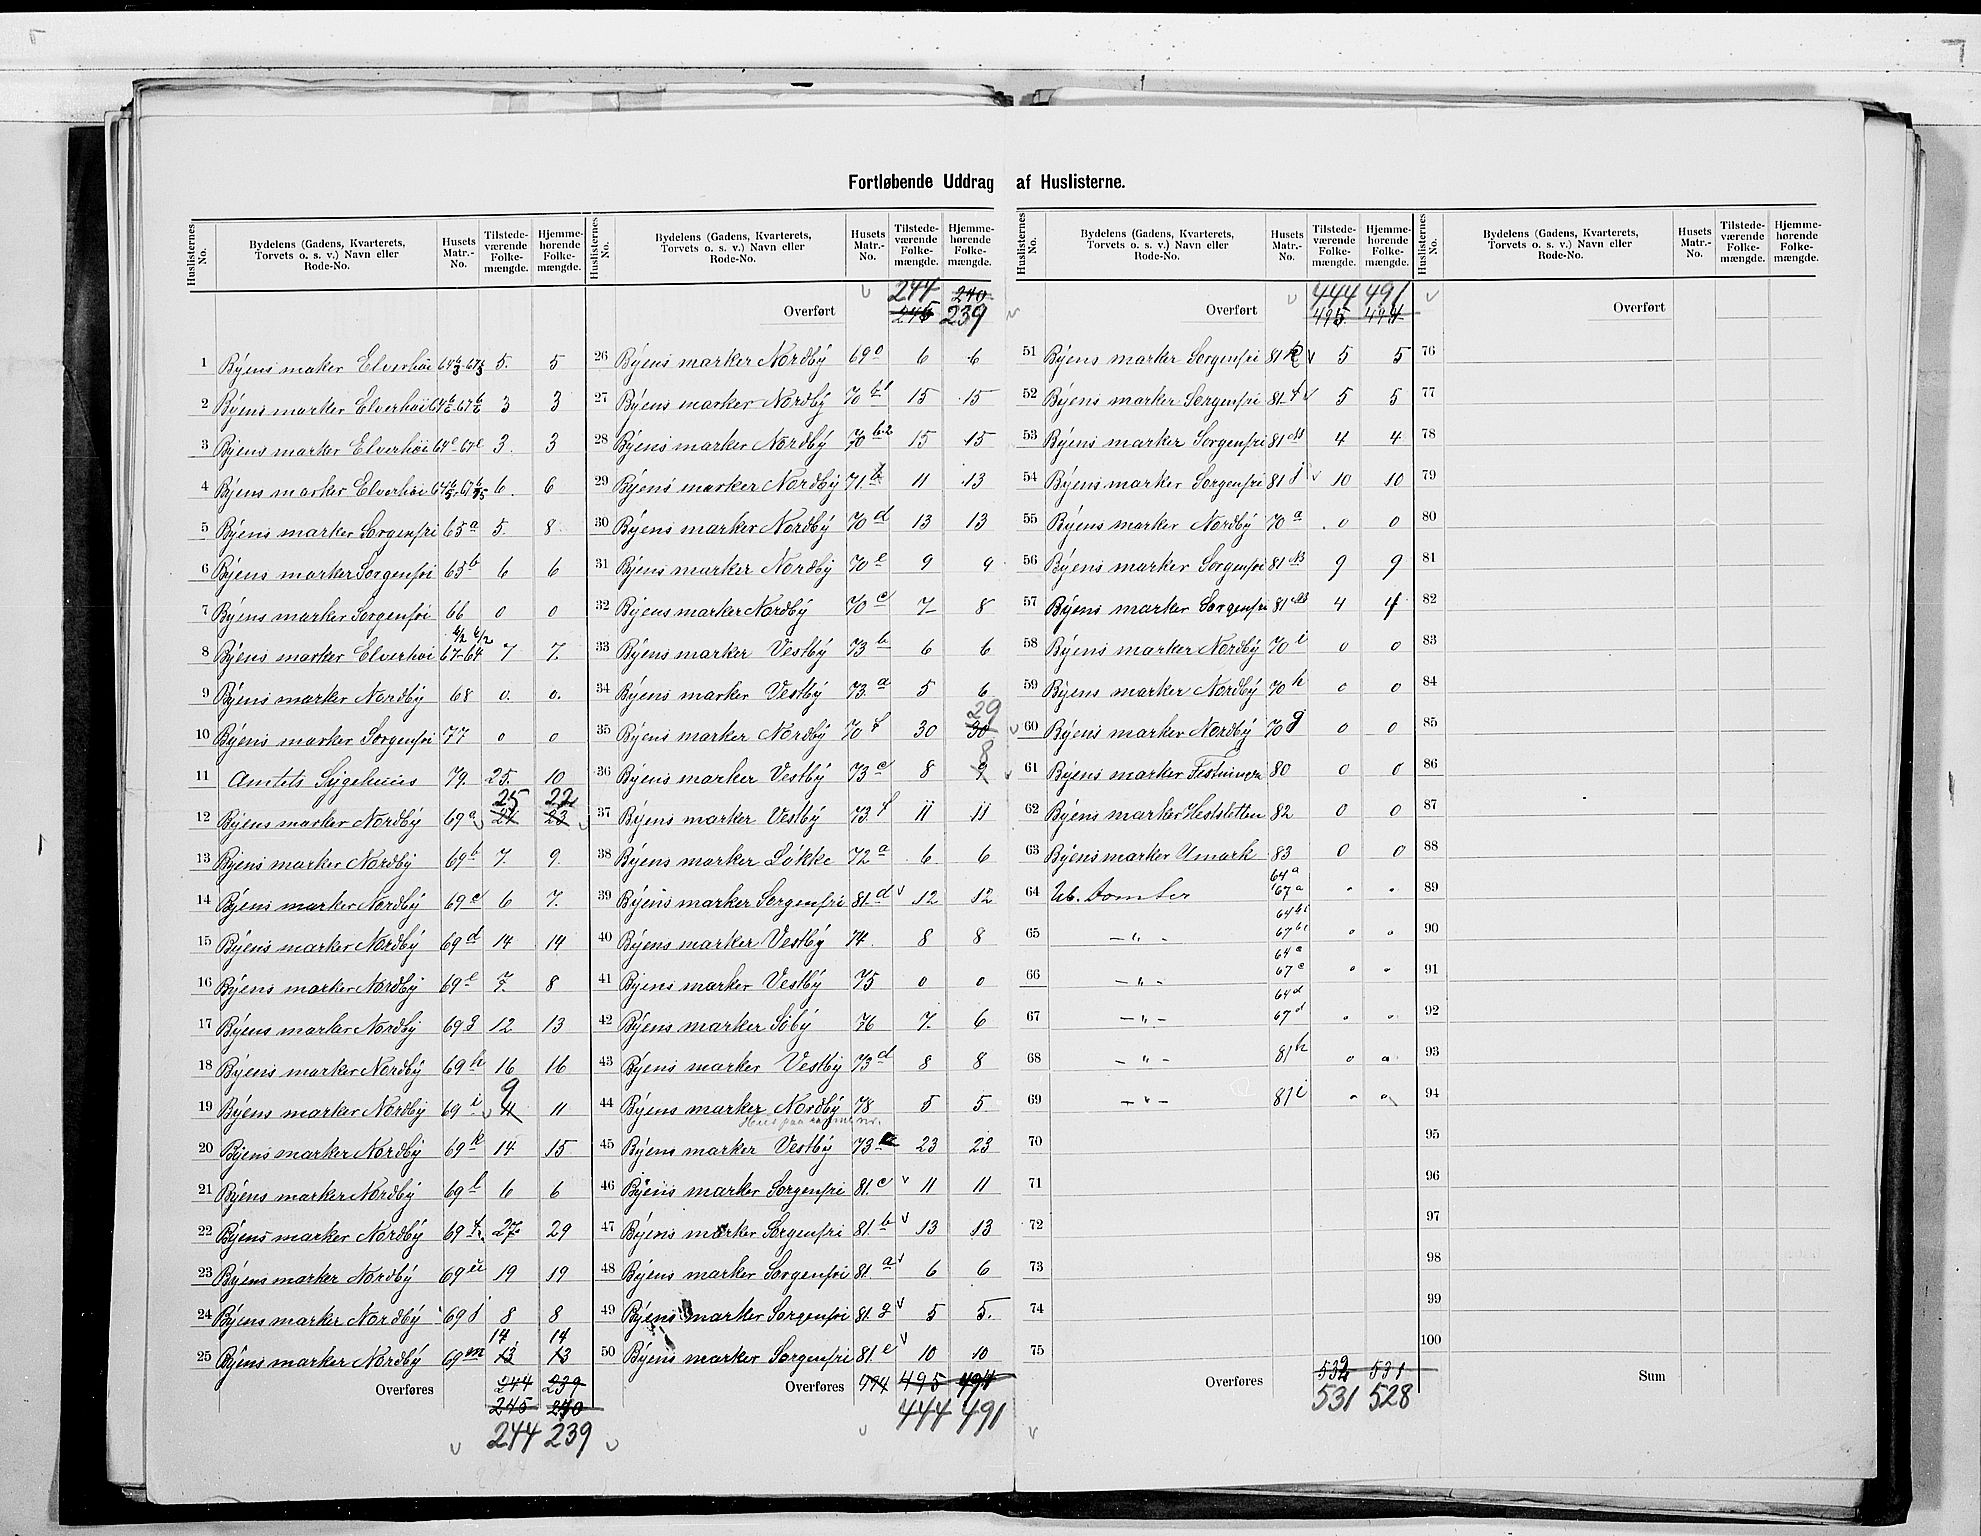 Fortløbende Uddrag af Huslisterne.
Huslisternes No. Bydelens (Gadens, Kvarterets, Torvets o. s. v.) Navn eller Rode-No. Husets Matr.-No. Tilstede-værende Folke-mængde. Hjemme-hørende Folke-mængde.
1 Byens maker Elverhöi 5. 5
2 Byens marker Elverhöi 3 3
3 Byens marker Elverhöi 64e-67e 3. 3
4 Byens marker Elverhöi 6. 6
5 Byens marker Sorgenfri 65a 5. 8
6 Byens marker Sorgenfri 65b 6 6
7 Byens marker Sorgenfri 66 0 0
8 Byens marker Elverhöi 67-64 7 7
9 Byens marker Nordby 68 0. 0.
10 Byens marker Sorgenfri 77 0 0
11 Amtets Sygehuus 79. 25. 10
25 22
12 Byens marker Nordby 69a 24 23
13 Byens marker Nordby 69b 7. 9.
14 Byens marker Nordby 69c 6 7.
15 Byens marker Nordby 69d 14 14
16 Byens marker Nordby 69e 7. 8
17 Byens marker Nordby 69g 12 13
18 Byens marker Nordby 69h 16 16
9
19 Byens marker Nordby 69i 11 11
20 Byens marker Nordby 69k 14 15
21 Byens marker Nordby 69l 6 6
22 Byens marker Nordby 69f. 27 29
23 Byens marker Nordby 69 19 19
24 Byens marker Nordby 69j 8 8
14 14
25 Byens marker Nordby 69m 13 13
Overføres 244 239
245 240
244 239
Huslisternes No. Bydelens (Gadens, Kvarterets, Torvets o. s. v.) Navn eller Rode-No. Husets Matr.-No. Tilstede-værende Folke-mængde. Hjemme-hørende Folke-mængde.
244 240
Overført 245 239
26 Byens marker Nordby 69o 6 6
27 Byens marker Nordby 70b1 15 15
28 Byens marker Nordby 70b2 15 15
29 Byens marker Nordby 71.b 11 13
30 Byens marker Nordby 70d 13 13
31 Byens marker Nordby 70e 9 9
32 Byens marker Nordby 70c 7 8
33 Byens marker Vestby 73b 6 6
34 Byens marker Vestby 73a 5 6
29
35 Byens marker Nordby 70f 30 30
8
36 Byens marker Vestby 73c 8 9
37 Byens marker Vestby 73.f 11 11
38 Byens marker Løkke 72a 6 6
39 Byens marker Sorgenfri 81.d 12 12
40 Byens marker Vestby 74. 8 8
41 Byens marker Vestby 75 0 0
42 Byens marker Söby 76 7. 6
43 Byens marker Vestby 73d 8 8
44 Byens marker Nordby 78 5 5.
45 Byens marker Vestby 73e 23 23
46 Byens marker Sorgenfri 81.c 11 11
47 Byens marker Sorgenfri 81.b 13 13
48 Byens marker Sorgenfri 81.a 6 6
49 Byens marker Sorgenfri 81.g 5 5.
50 Byens marker Sorgenfri 81.e 10 10
Overføres 494 495 494
444 491
Huslisternes No. Bydelens (Gadens, Kvarterets, Torvets o. s. v.) Navn eller Rode-No. Husets Matr.-No. Tilstede-værende Folke-mængde. Hjemme-hørende Folke-mængde.
444 491
Overført 495. 494
51 Byens marker Sorgenfri 81k 5 5
52 Byens marker Sorgenfri 81.f 5 5
53 Byens marker Sorgenfri 4 4
54 Byens marker Sorgenfri 81j 10 10
55 Byens marker Nordby 70a 0 0
56 Byens marker Sorgenfri 9 9
57 Byens marker Sorgenfri 4 4
58 Byens marker Nordby 70i 0 0
59 Byens marker Nordby 70h 0 0
60 Byens marker Nordby 70g 0 0
61 Byens marker 80 0 0
62 Byens marker 82 0 0
63 Byens marker Umark 83 0 0
64a
64 Ub. Tomter 67a " "
64b1
65 — " — 67b1 " "
66 — " — 67c " "
64d
67 — " — 67d " "
68 — " — 81h " "
69 — " — 81i " "
70
71
72
73
74
75
Overføres 532 531
531 528
Huslisternes No. Bydelens (Gadens, Kvarterets, Torvets o. s. v.) Navn eller Rode-No. Husets Matr.-No. Tilstede-værende Folke-mængde. Hjemme-hørende Folke-mængde.
Overført
76
77
78
79
80
81
82
83
84
85
86
87
88
89
90
91
92
93
94
95
96
97
98
99
100
Sum